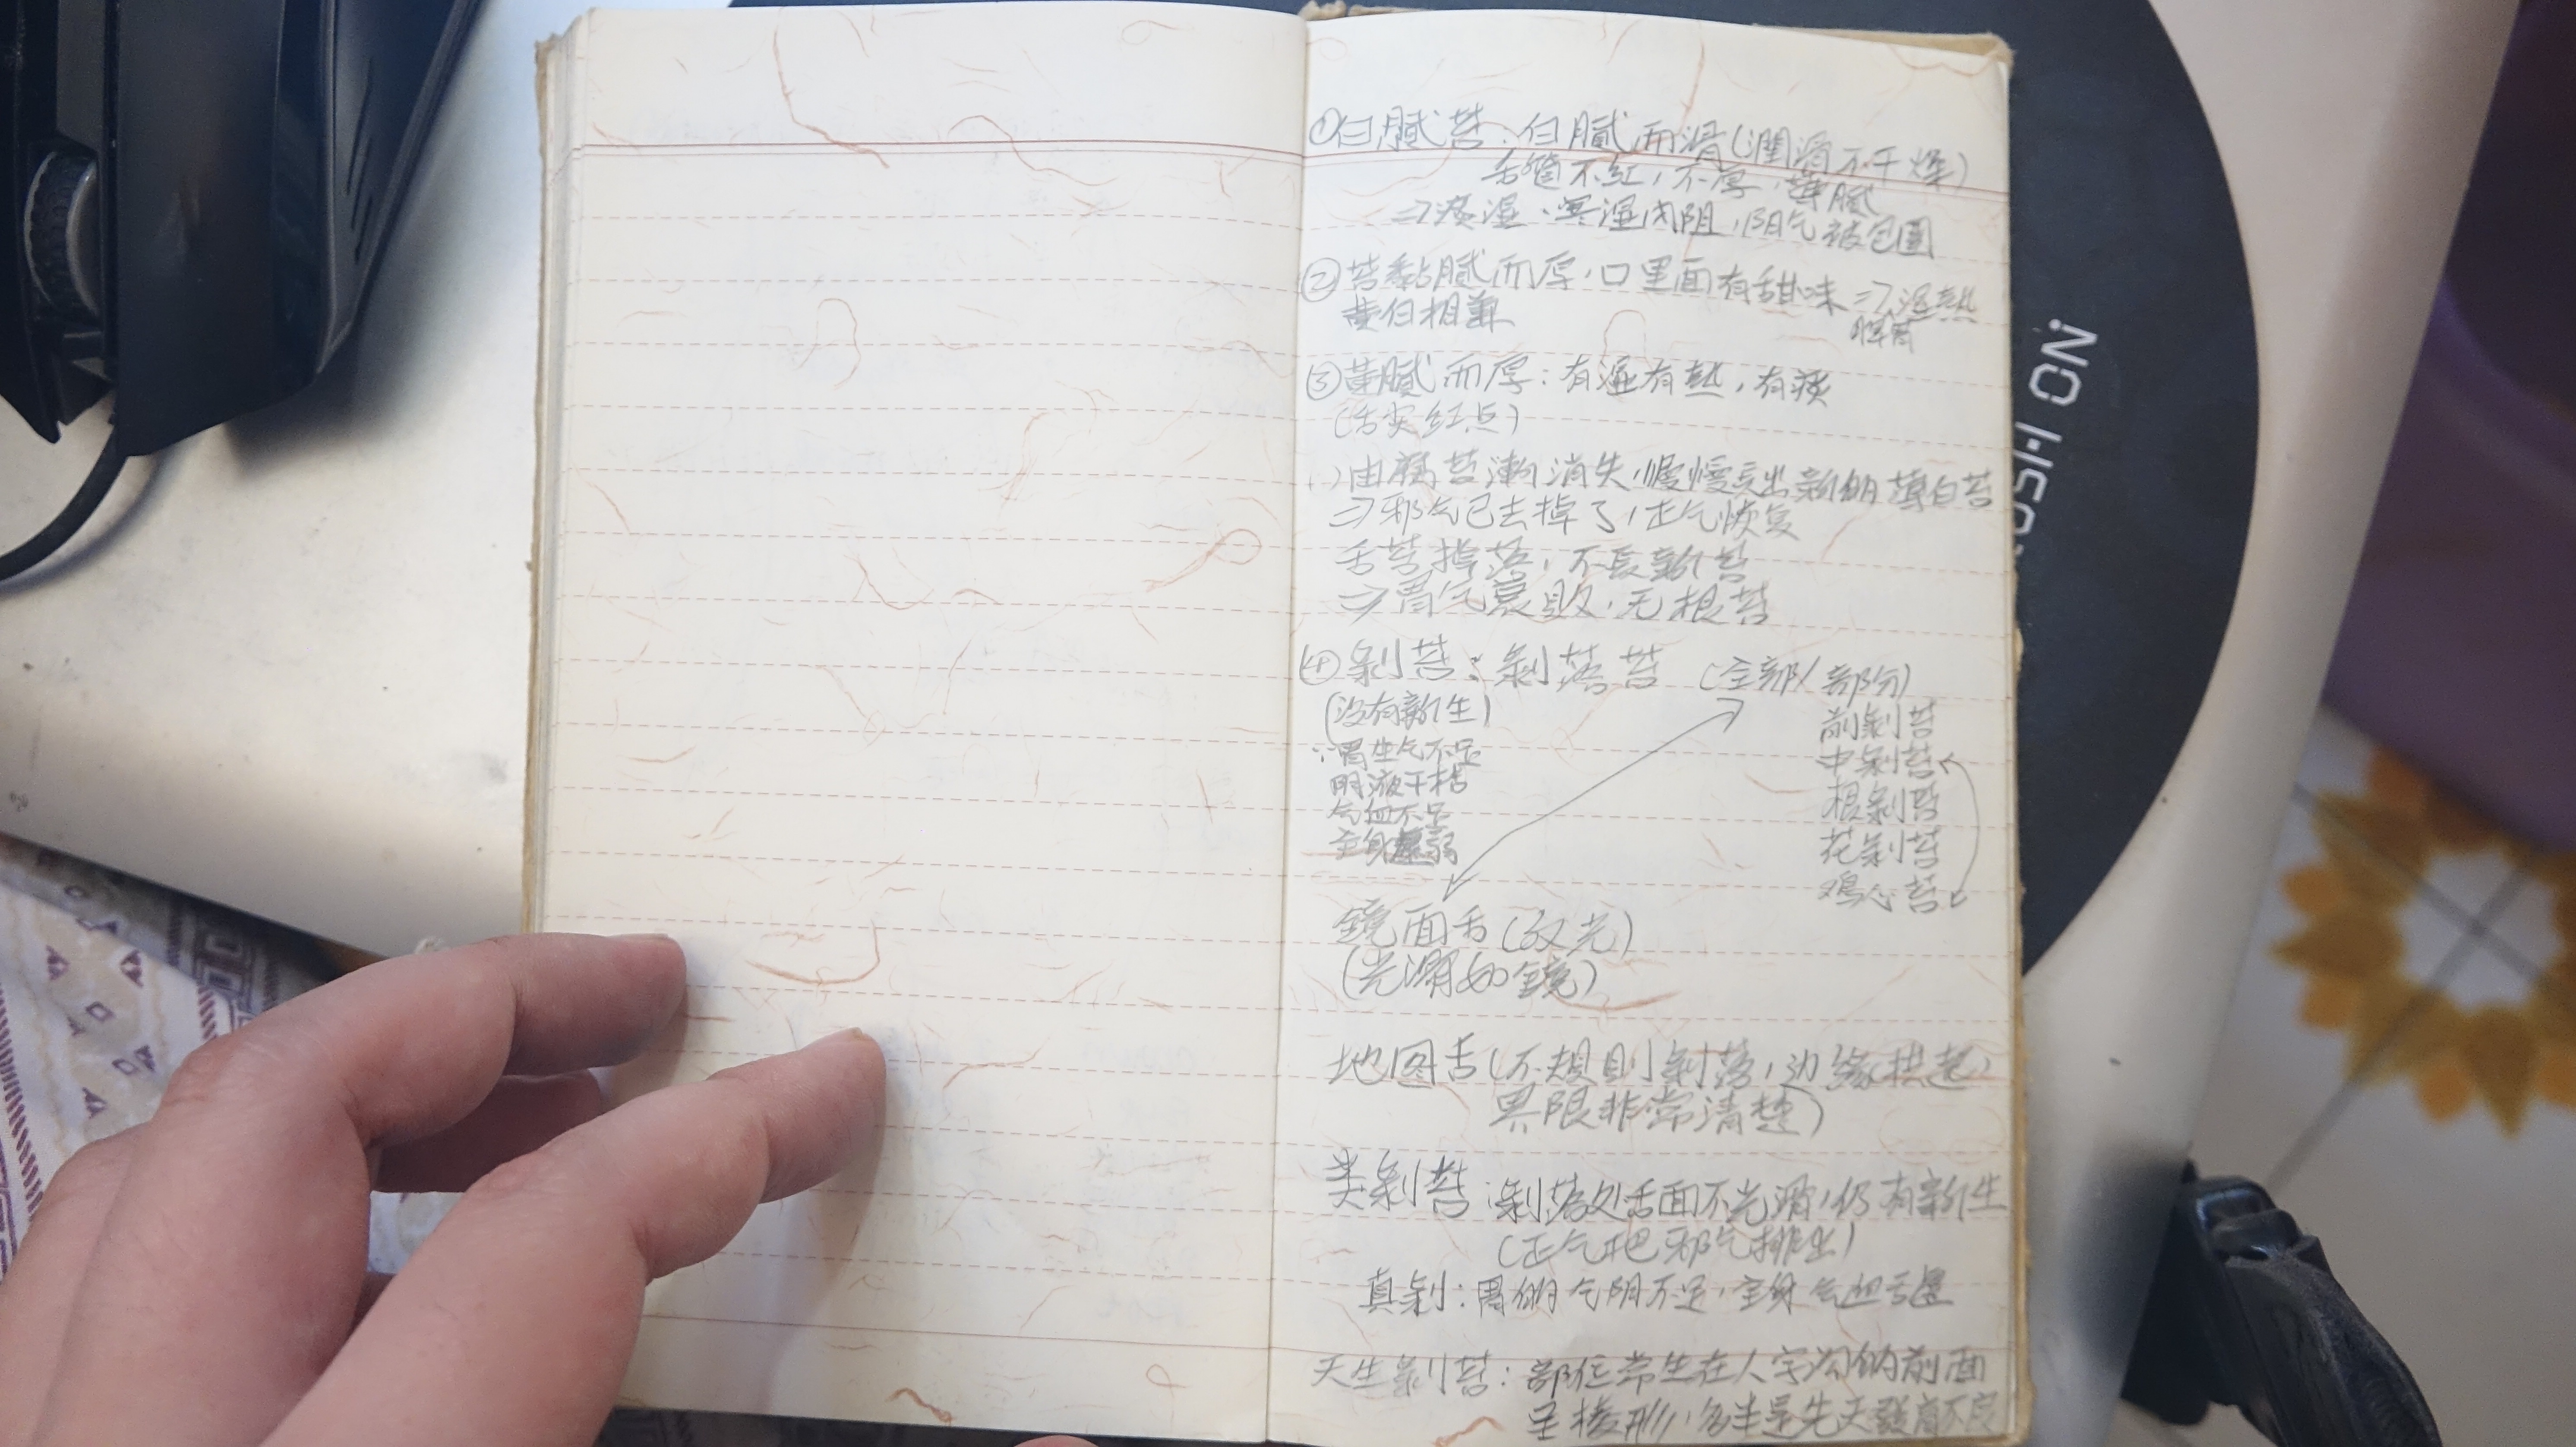 ①白腻苔：白腻而滑(潤滑不干燥)
舌質不红，不厚，薄腻
⇒痰湿、寒湿内阻，阳气被包圍
②苔黏腻而厚，口里面有甜味⇒湿熱
黄白相兼 脾胃
③黄腻而厚：有湿有熱，有痰
(舌尖红点)
由腐苔漸消失，慢慢長出新的薄白苔
⇒邪气已去掉了，正气恢复
舌苔掉落，不長新苔
⇒胃气衰败，无根苔
④剝苔：剝落苔 (全部/部份)
(没有新生)
∵胃生气不足
阴液干枯
气血不足
全身虚弱
前剝苔
中剝苔
根剝苔
花剝苔
鸡心苔
鏡面舌(反光)
(光滑如鏡)
地图舌(不規則剝落，边缘拱起，
界限非常清楚)
类剝苔：剝落处舌面不光滑，仍有新生
(正气把邪气排出)
真剝：胃的气阴不足，全身气血亏虚
天生剝苔：部位常生在人字沟的前面
呈棱形，多半是先天發育不良
NO HSOI